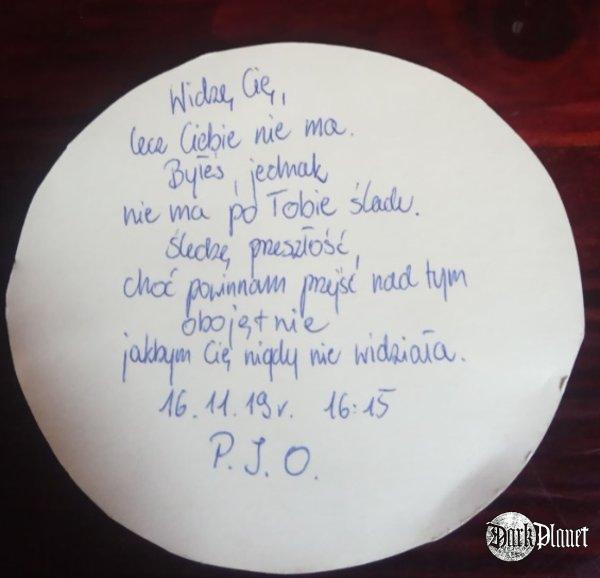 Widzę Cię,
lecz Ciebie nie ma.
Byłeś, jednak
nie ma po Tobie śladu.
Śledzę przeszłość,
choć powinnam przejść nad tym
obojętnie
jakbym Cię nigdy nie widziała.
16.11.19r. 16:15
P.J.O.
DarkPlanet